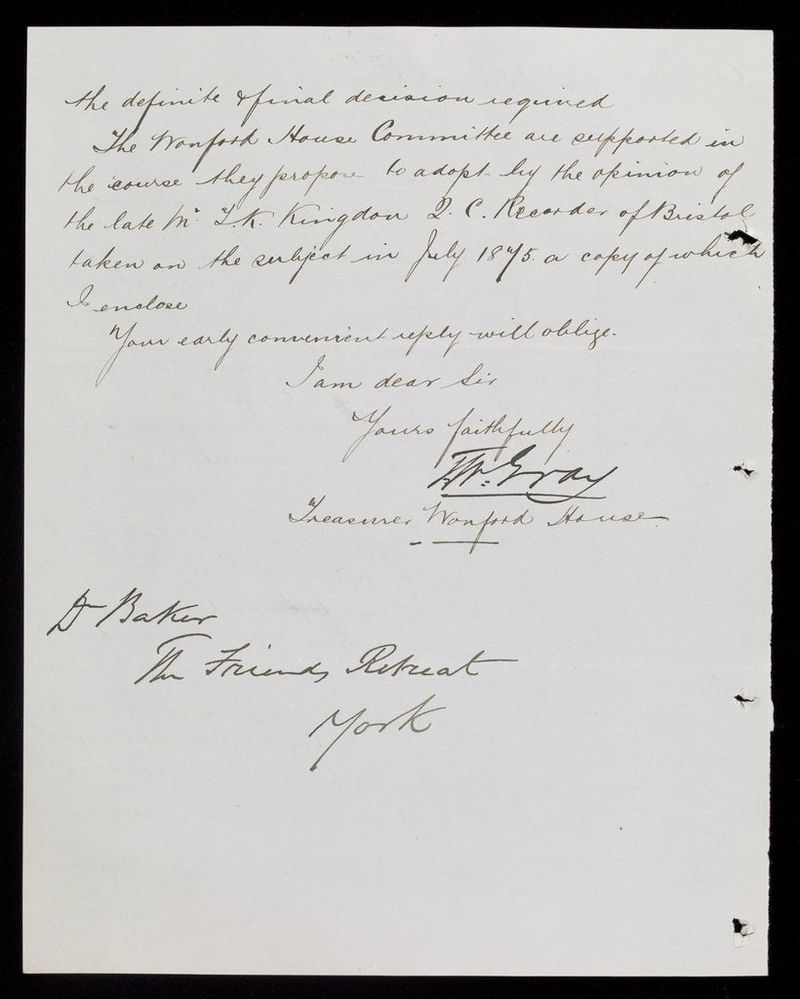 the definite & final decision required
The Wonford House Committee are supported in
the course they propose to adopt by the opinion of
the late Mr T. K. Kingdon Q. C. Recorder of Bristol
taken on the subject in July 1875. a copy of which
I enclose
Your early convenient reply will oblige.
I am dear Sir
Yours faithfully
W. Gray
Treasurer Wonford House
Dr Baker
The Friends Retreat
York